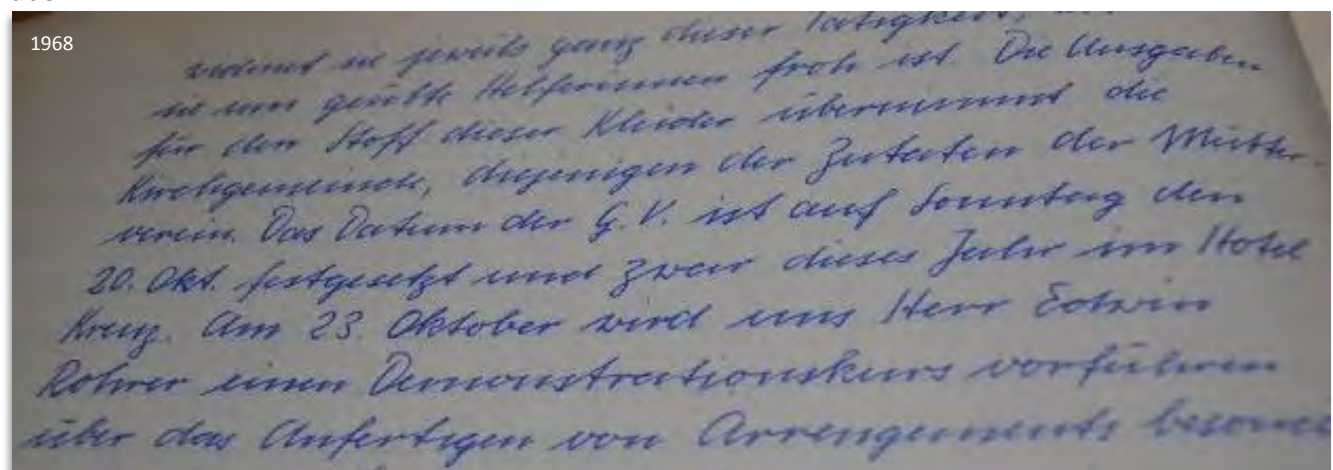 1968
widmet sie jeweils ganz dieser Tätigkeit,
sie um geübte Helferinnen froh ist. Die Ausgaben
für den Stoff dieser Kleider übernimmt die
Kirchgemeinde, diejenigen der Zutaten der Mütter-
verein. Das Datum der G.V. ist auf Sonntag den
20. Okt. festgesetzt und zwar dieses Jahr im Hotel
Kreuz. Am 23. Oktober wird uns Herr Edwin
Rohrer einen Demonstrationskurs vorführen
über das Anfertigen von Arrengements